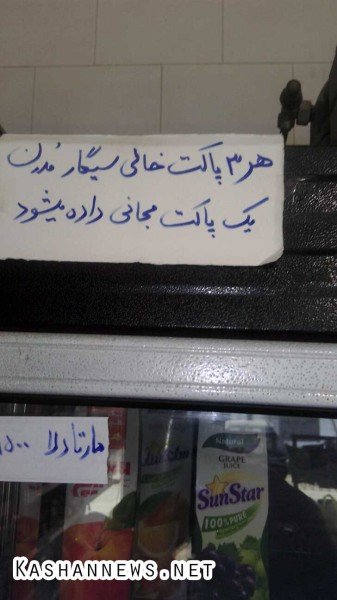 هر ۳ پاکت خالی سیگار مُدرن
یک پاکت مجانی داده میشود
Natural
GRAPE
JUICE
SunStar
100% PURE
KASHANNEWS.NET